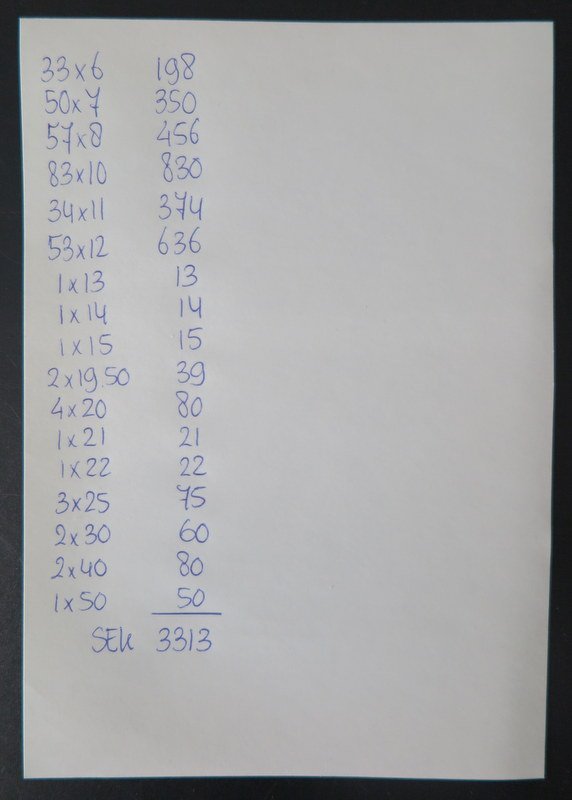 33x6 198
50x7 350
57x8 456
83x10 830
34x11 374
53x12 636
1x13 13
1x14 14
1x15 15
2x19.50 39
4x20 80
1x21 21
1x22 22
3x25 75
2x30 60
2x40 80
1x50 50
SEK 3313